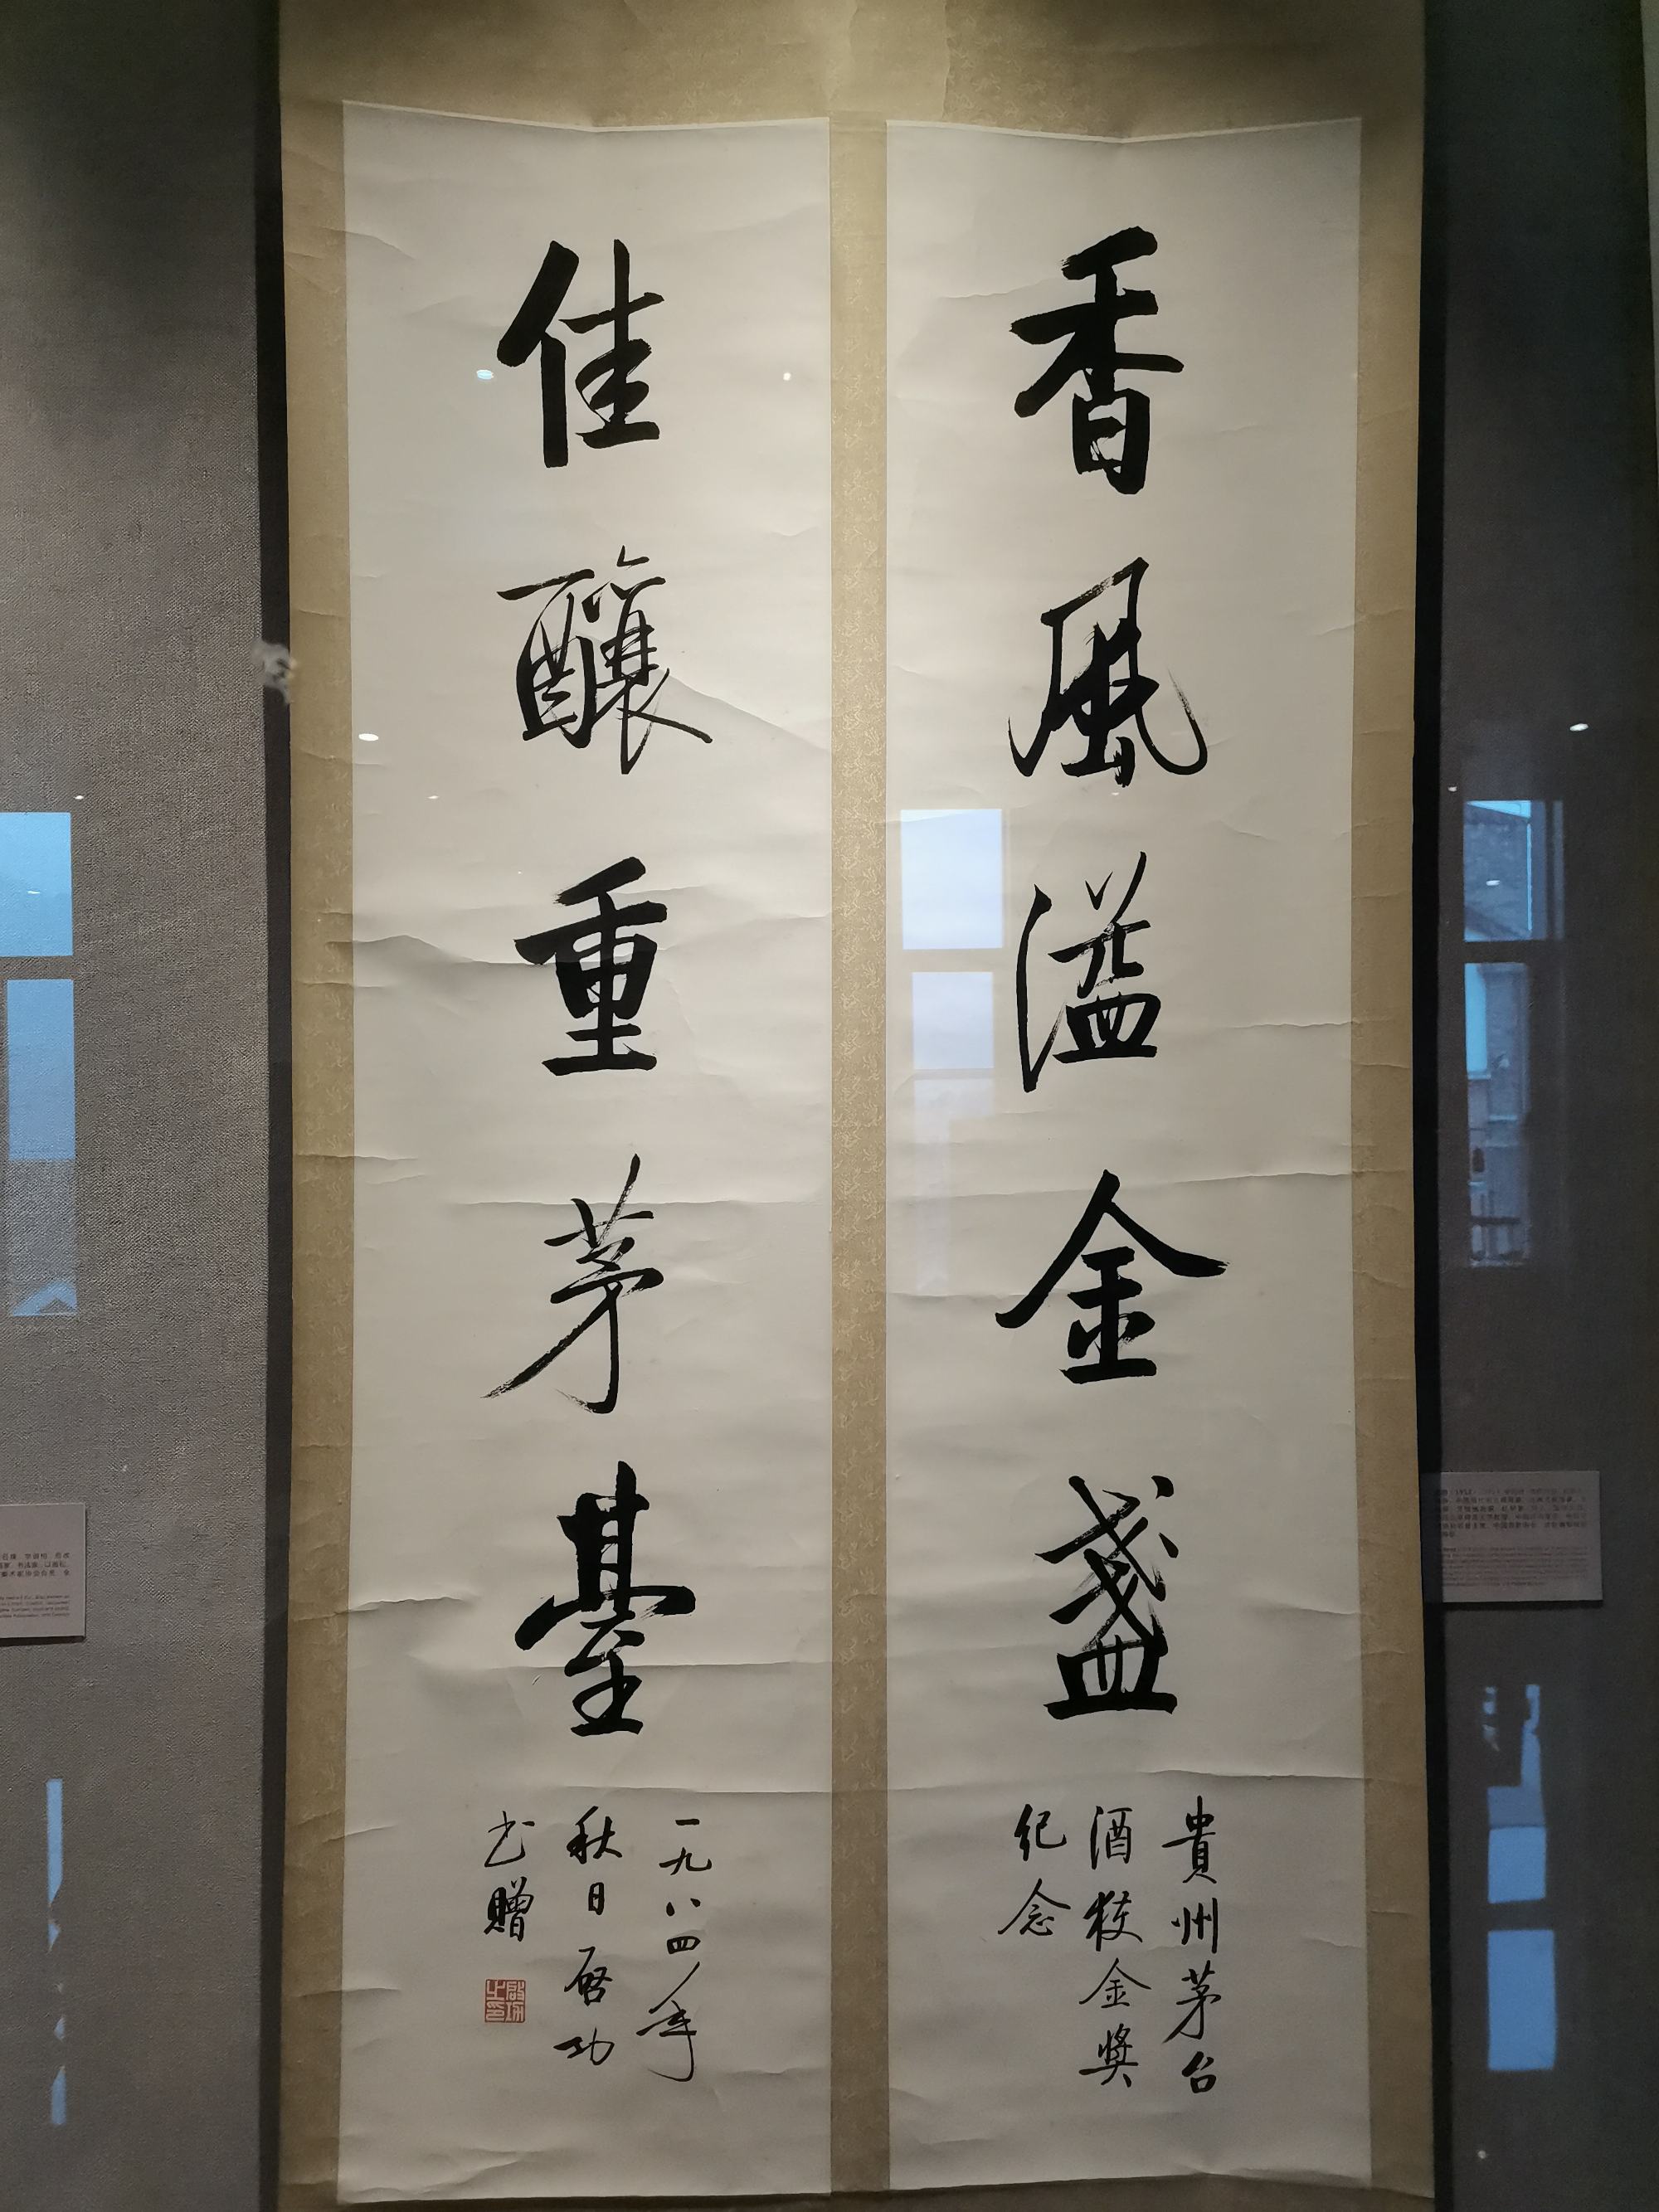 香風溢金盞
貴州茅台
酒獲金奬
纪念
佳釀重茅臺
一九八四年
秋日启功
书贈
啟功之印